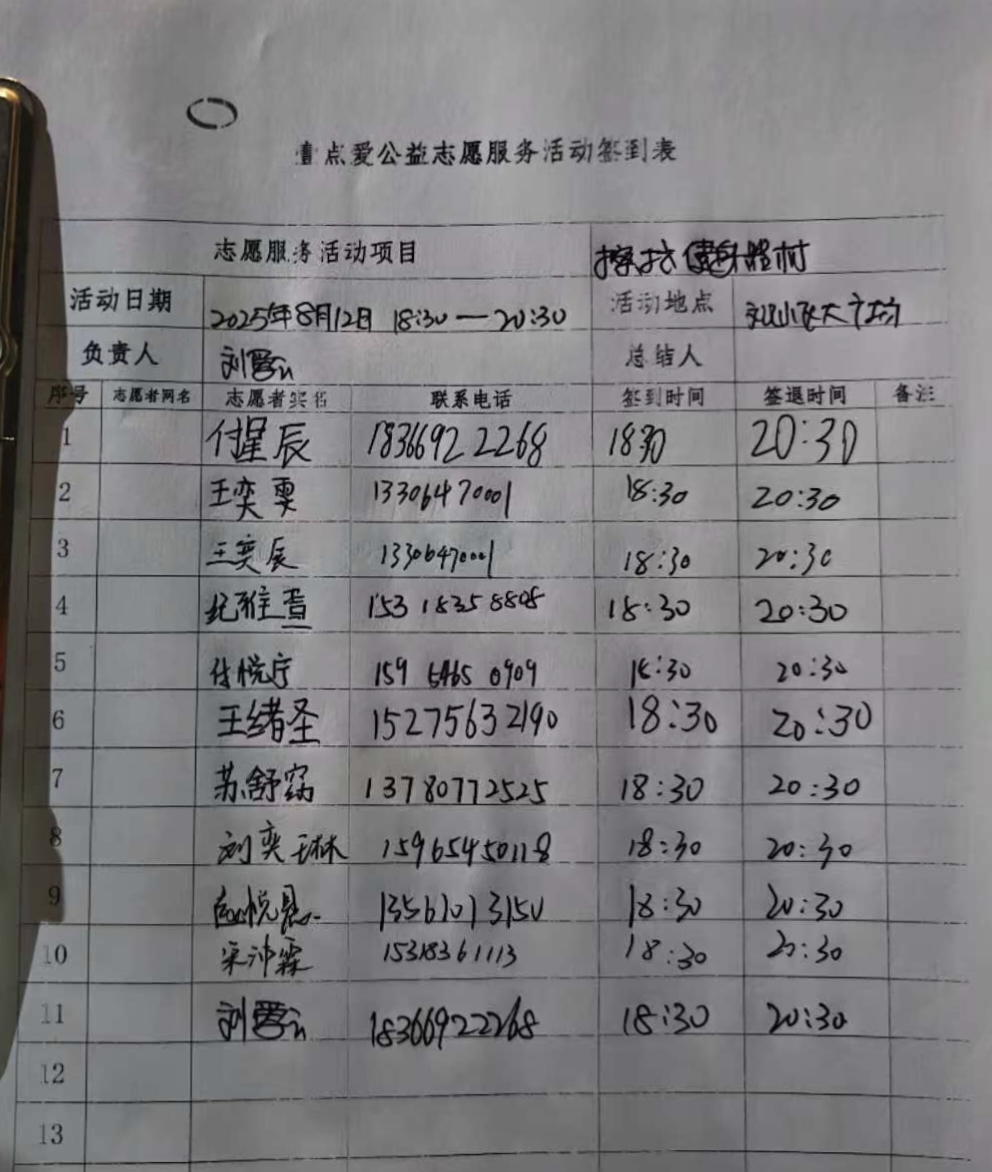 壹点爱公益志愿服务活动签到表
志愿服务活动项目 擦拭健身器材
活动日期 2025年8月12日 18:30—20:30 活动地点
负责人 刘 总结人
序号 志愿者网名 志愿者实名 联系电话 签到时间 签退时间 备注
1 付星辰 18366922268 1830 20:30
2 王奕雯 13306470001 18:30 20:30
3 王奕辰 13306470001 18:30 20:30
4 纪雅萱 153 1835 8808 18:30 20:30
5 付悦宁 159 6465 0909 18:30 20:30
6 王绪圣 15275632190 18:30 20:30
7 苏舒窈 13780772525 18:30 20:30
8 刘奕琳 15965450118 18:30 20:30
9 13561013150 18:30 20:30
10 宋沛霖 15318361113 18:30 20:30
11 刘 18366922268 18:30 20:30
12
13